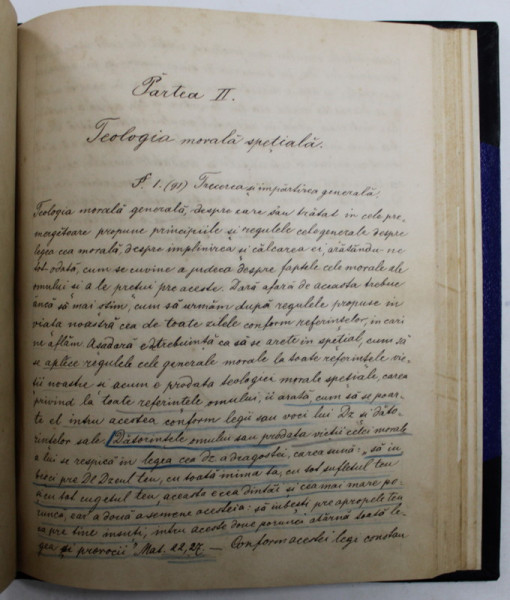 Partea II.
Teologia morală spețială.
§. 1. (91) Trecerea și împărțirea generală
Teologia morală generală, despre care sau tratat in cele pre-
mergătoare propune principiile și regulele cele generale despre
legea cea morală, despre implinirea și călcarea ei, arătându-ne
tot odată, cum se cuvine a judeca despre faptele cele morale ale
omului si a le pretui pre aceste. Dară afară de aceasta trebue
incă să mai stim, cum să urmăm după regulele propuse in
viata noastră cea de toate zilele conform referintelor, in cari
ne aflăm. Asadară e trebuintă ca să se arete in spetial, cum să
se aplece regulele cele generale morale la toate referintele vie-
tii noastre si acum e prodata teologiei morale spetiale, carea
privind la toate referintele omului, ii arată, cum să se poar-
te el intru acestea conform legii sau voci lui Dz și dăto-
rintelor sale. Dătorintele omului sau prodata vietii celei morale
a lui se respică in legea cea de a dragostii, carea sună: "să iu-
besci pre Dl Dzeul teu, cu toată inima ta, cu tot sufletul teu
si cu tot cugetul teu, aceste e cea dintăi si cea mai mare po-
runcă, ear a două asemene acesteia: să iubesti pre apropele teu
ca pre tine insuti, intru aceste doue porunci atârnă toată le-
gea și prorocii" Mat. 22, 27. — Conform acestei legi constau